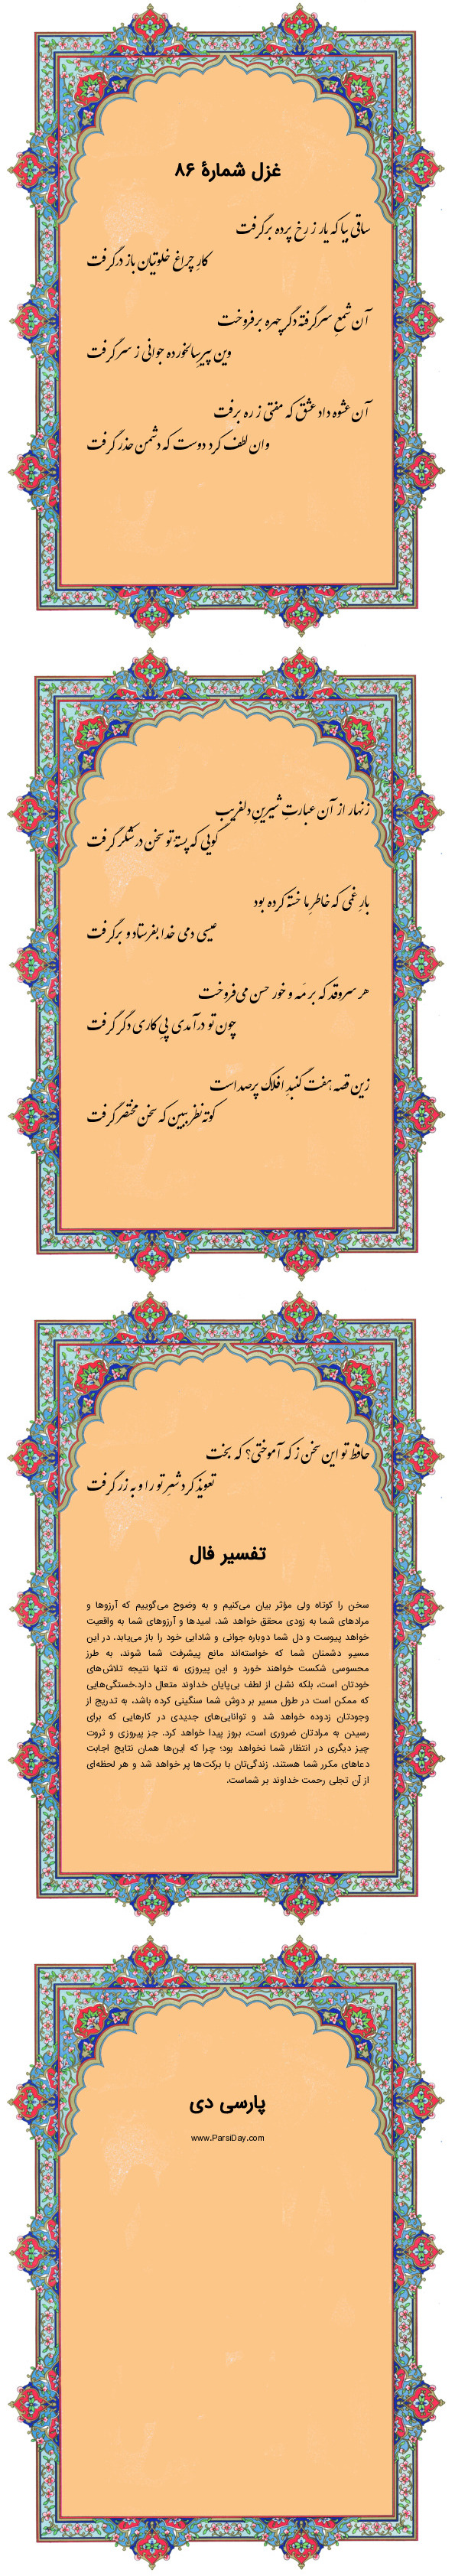 غزل شمارهٔ ۸۶
ساقی بیا که یار ز رخ پرده برگرفت
کارِ چراغِ خلوتیان باز درگرفت
آن شمعِ سرگرفته دگر چهره برفروخت
وین پیرِ سالخورده جوانی ز سر گرفت
آن عشوه داد عشق که مفتی ز ره برفت
وان لطف کرد دوست که دشمن حذر گرفت
زنهار از آن عبارتِ شیرینِ دلفریب
گویی که پستهٔ تو سخن در شکر گرفت
بارِ غمی که خاطرِ ما خسته کرده بود
عیسی دمی خدا بفرستاد و برگرفت
هر سروقد که بر مَه و خور حسن می‌فروخت
چون تو درآمدی پیِ کاری دگر گرفت
زین قصه هفت گنبدِ افلاک پرصداست
کوته‌نظر ببین که سخن مختصر گرفت
حافظ تو این سخن ز که آموختی؟ که بخت
تعویذ کرد شعرِ تو را و به زر گرفت
تفسیر فال
سخن را کوتاه ولی مؤثر بیان می‌کنیم و به وضوح می‌گوییم که آرزوها و
مرادهای شما به زودی محقق خواهد شد. امیدها و آرزوهای شما به واقعیت
خواهد پیوست و دل شما دوباره جوانی و شادابی خود را باز می‌یابد. در این
مسیر، دشمنان شما که خواسته‌اند مانع پیشرفت شما شوند، به طرز
محسوسی شکست خواهند خورد و این پیروزی نه تنها نتیجه تلاش‌های
خودتان است، بلکه نشان از لطف بی‌پایان خداوند متعال دارد.خستگی‌هایی
که ممکن است در طول مسیر بر دوش شما سنگینی کرده باشد، به تدریج از
وجودتان زدوده خواهد شد و توانایی‌های جدیدی در کارهایی که برای
رسیدن به مرادتان ضروری است، بروز پیدا خواهد کرد. جز پیروزی و ثروت
چیز دیگری در انتظار شما نخواهد بود؛ چرا که این‌ها همان نتایج اجابت
دعاهای مکرر شما هستند. زندگی‌تان با برکت‌ها پر خواهد شد و هر لحظه‌ای
از آن تجلی رحمت خداوند بر شماست.
پارسی دی
www.ParsiDay.com